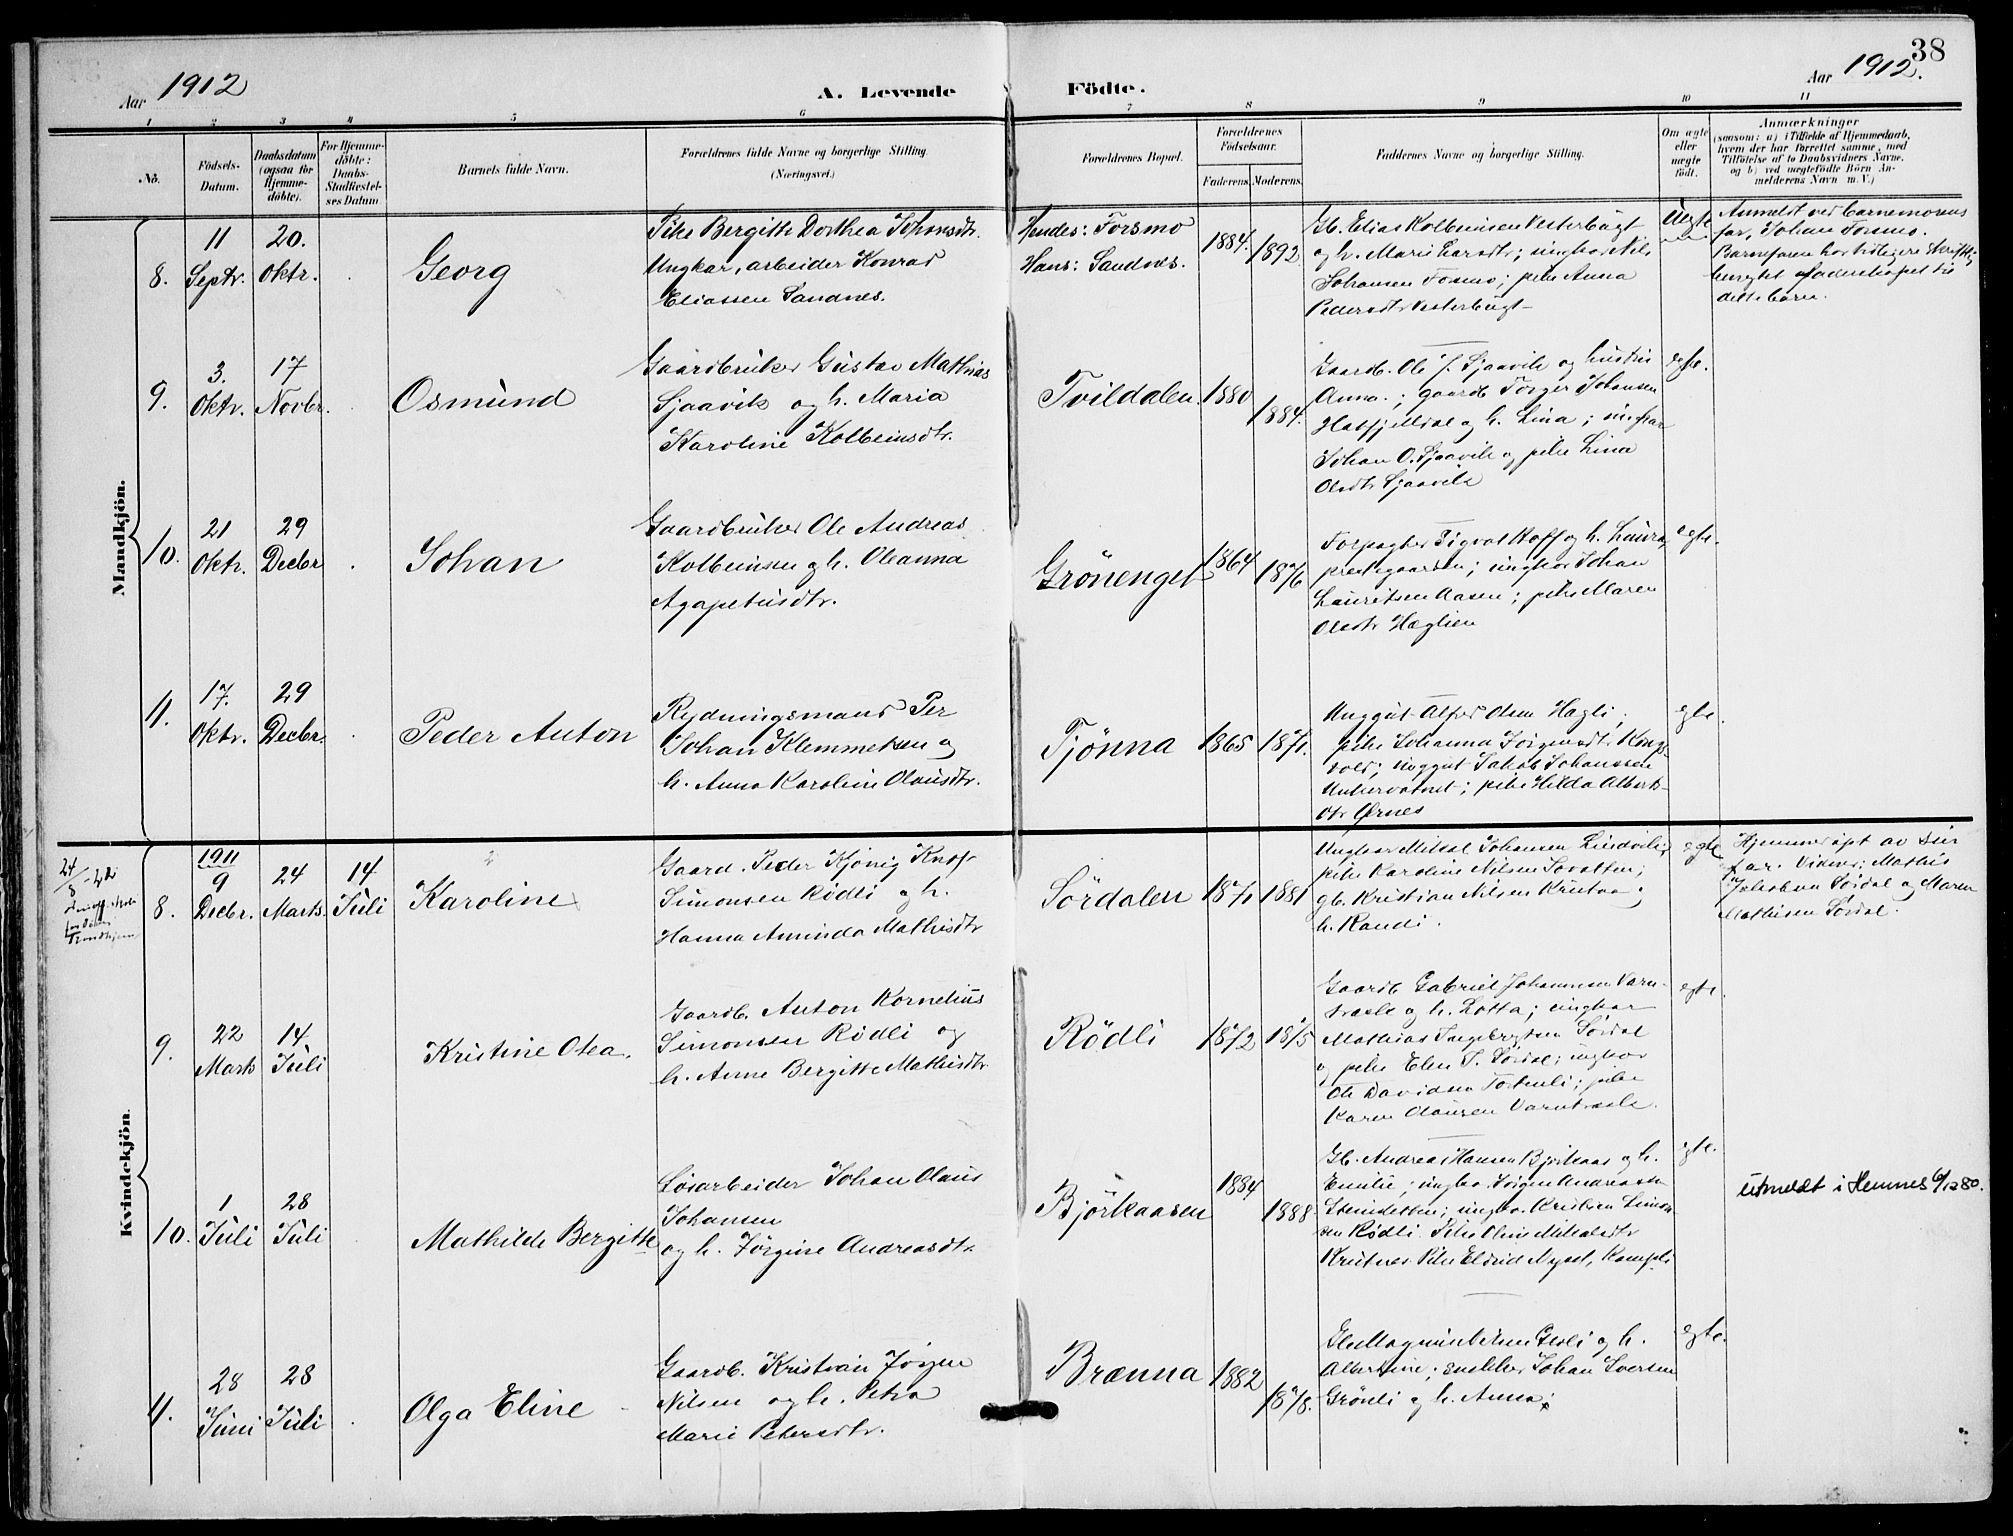 38
Aar 1912
A. Levende
Födte.
Aar 1912.
1 2 3 4 5 6 7 8 9 10 11
No.
Födsels-
Datum.
Daabsdatum
(ogsaa for
Hjemme-
döbte).
For Hjemme-
döbte:
Daabs-
Stadfæstel-
ses Datum
Barnets fulde Navn.
Forældrenes fulde Navne og borgerlige Stilling.
(Næringsvei.)
Forældrenes Bopæl.
Forældrenes
Födselsaar.
Faderens. Moderens.
Faddernes Navne og borgerlige Stilling.
Om ægte
eller
uægte
födt.
Anmærkninger
(saasom: a) i Tilfælde af Hjemmedaab,
hvem der har forrettet samme, med
Tilföielse af to Daabsvidners Navne,
og b) ved uægtefödte Börn An-
melderens Navn m. V.)
Mandkjön.
8.
11
Septr.
20.
Oktr.
Georg
Pike Bergitte Dorthea Johnsdtr.
Ungkar, arbeider Konrad
Eliassen Sandnes.
Hendes: Forsmo
Hans: Sandnes.
1884. 1892
Gb. Elias Kolbeinsen Vesterbugt
og h. Marit Larsdtr; ungkar Nils
Johansen Fosmo; pike Anna
Pedersdtr Vesterbugt
Uegte
Anmeldt ved barnemorens
far, Johan Forsmo.
Barnefaren har tidligere skriftl.
til
dette barn.
9.
3.
Oktr.
17
Novbr.
Osmund
Gaardbruker Gustav Mathias
Sjaavik og h. Maria
Karoline Kolbeinsdtr.
Tvildalen
1880
1884.
Gaardb. Ole J. Sjaavik og hustru
Anna.; gaardb Torger Johansen
Hatfjelldal og h. Lina; ungkar
Johan O. Sjaavik og pike Lina
Olsdtr Sjaavik
egte.
10.
21
Oktr.
29
Decbr
Johan
Gaardbruker Ole Andreas
Kolbeinsen og h. Oleanna
Agapetusdtr.
Grönenget
1864
1876
Forpagter Sigvat Koff og h. Laura,
prestegaarden; ungkar Johan
Lauritsen Aasen; pike Maren
Olsdtr Hæglien
egte.
11.
17.
Oktr.
29
Decbr.
Peder Anton
Rydningsmand Per
Johan Klemmetsen og
h. Anna Karoline Olausdtr.
Tjönna
1865 1871.
Unggut Alfred Olsen Hægli;
pike Johanna Jörgensdtr Kongs-
vold; unggut Jakob Johanssen
Unkervatnet; pike Hilda Alberts-
dtr Ørnes
egte.
Kvindekjön.
24/8 -42
Trondhjem
8.
1911
9
Decbr.
24
Marts
14
Juli
Karoline
Gaard. Peder Kjönig Knoff
Simonsen Rödli og h.
Hanna Aminda Mathisdtr
Sördalen
1871 1881
Ungkar Mikal Johansen Lindvik;
pike Karoline Nilsen Tovatten;
gb. Kristian Nilsen Krutaa;
h. Randi.
egte
Hjemmedöpt av sin
far. Vidner: Mathis
Jakobsen Sördal og Maren
Mathisen Sördal.
9.
22
Marts
14
Juli
Kristine Olea.
Gaardb. Anton Kornelius
Simonsen Rödli og
h. Anne Bergitte Mathisdtr
Rödli
1872 1875
Gaardb Gabriel Johannesen Varn-
træsk og h. Lotta; ungkar
Mathias Ingebrigtsen Sördal
og pike Elen P. Sördal; ungkar
Ole Davidsen Tortenli; pike
Karen Olausen Varntræsk.
egte.
10.
1
Juli
28
Juli
Mathilde Bergitte
Lösarbeider Johan Olaus
Johansen
og h. Jörgine Andreasdtr.
Björkaasen
1884
1888
Gb. Andreas Hansen Björkaas og h.
Emilie; ungkar Jörgen Andreassen
Stenidetten; ungkar Kristian Simon-
sen Rödli. Pike Oline Mikalsdtr
Krutnes Pike Eldrid Nyset, Kampli
egte.
utmeldt i Hemnes 6/12 80.
11.
28
Juni
28
Juli
Olga Eline
Gaardb. Kristian Jörgen
Nilsen og h. Petra
Marie Petersdtr.
Brænna
1882
1878.
Gb. Magnus Nilsen Gesli og h.
Albertine; snekker Johan Iversen
Grönli og h. Anna;
egte.